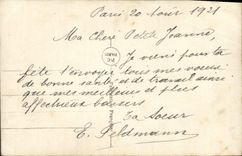 Paris 20 Août 1921
Ma Chère Petite Jeanne,
Je veux pour ta
fête t'envoyer tous mes voeux
de bonne santé et de travail ainsi
que mes meilleurs et plus
affectueux baisers
Ta Soeur
E. Feldmann